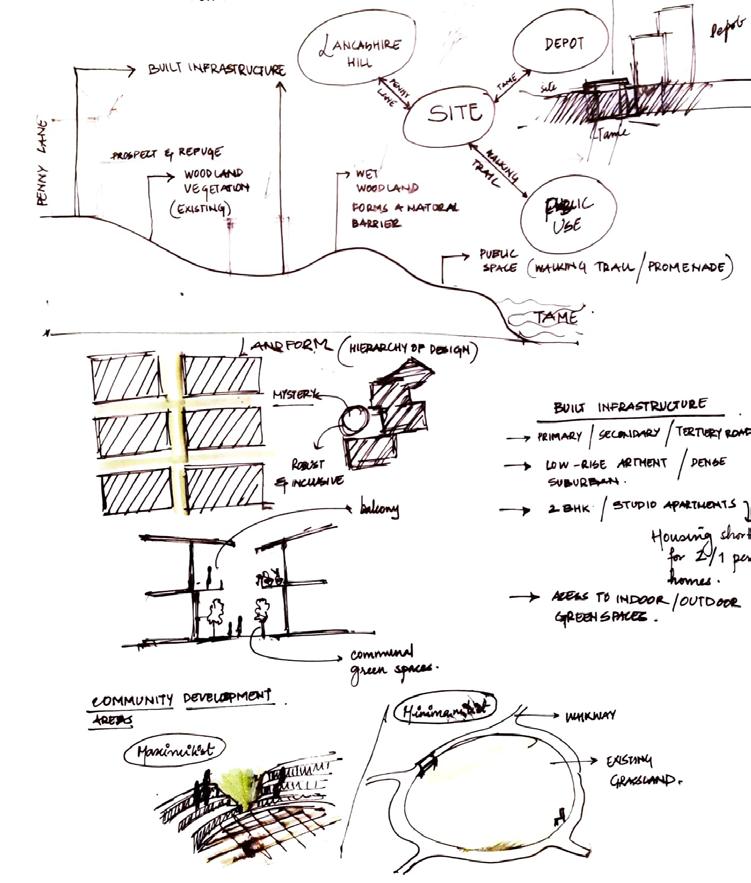 LANCASHIRE
HILL
DEPOT
Depot
BUILT INFRASTRUCTURE
PENNY
LANE
TAME
Site
SITE
Tame
PENNY LANE
PROSPECT & REFUGE
WOODLAND
VEGETATION
(EXISTING)
WET
WOODLAND
FORMS A NATURAL
BARRIER
WALKING
TRAIL
PUBLIC
USE
PUBLIC
SPACE (WALKING TRAIL / PROMENADE)
TAME
LANDFORM (HIERARCHY OF DESIGN)
MYSTERY
ROBUST
& INCLUSIVE
BUILT INFRASTRUCTURE
PRIMARY / SECONDARY / TERTIERY ROAD
LOW-RISE ARTMENT / DENSE
SUBURBAN.
2 BHK / STUDIO APARTMENTS
Housing short
for 2/1 per
homes.
ACESS TO INDOOR / OUTDOOR
GREEN SPACES.
balcony
communal
green spaces.
COMMUNITY DEVELOPMENT
AREAS
Maximilist
WALKWAY
EXISTING
GRASSLAND.